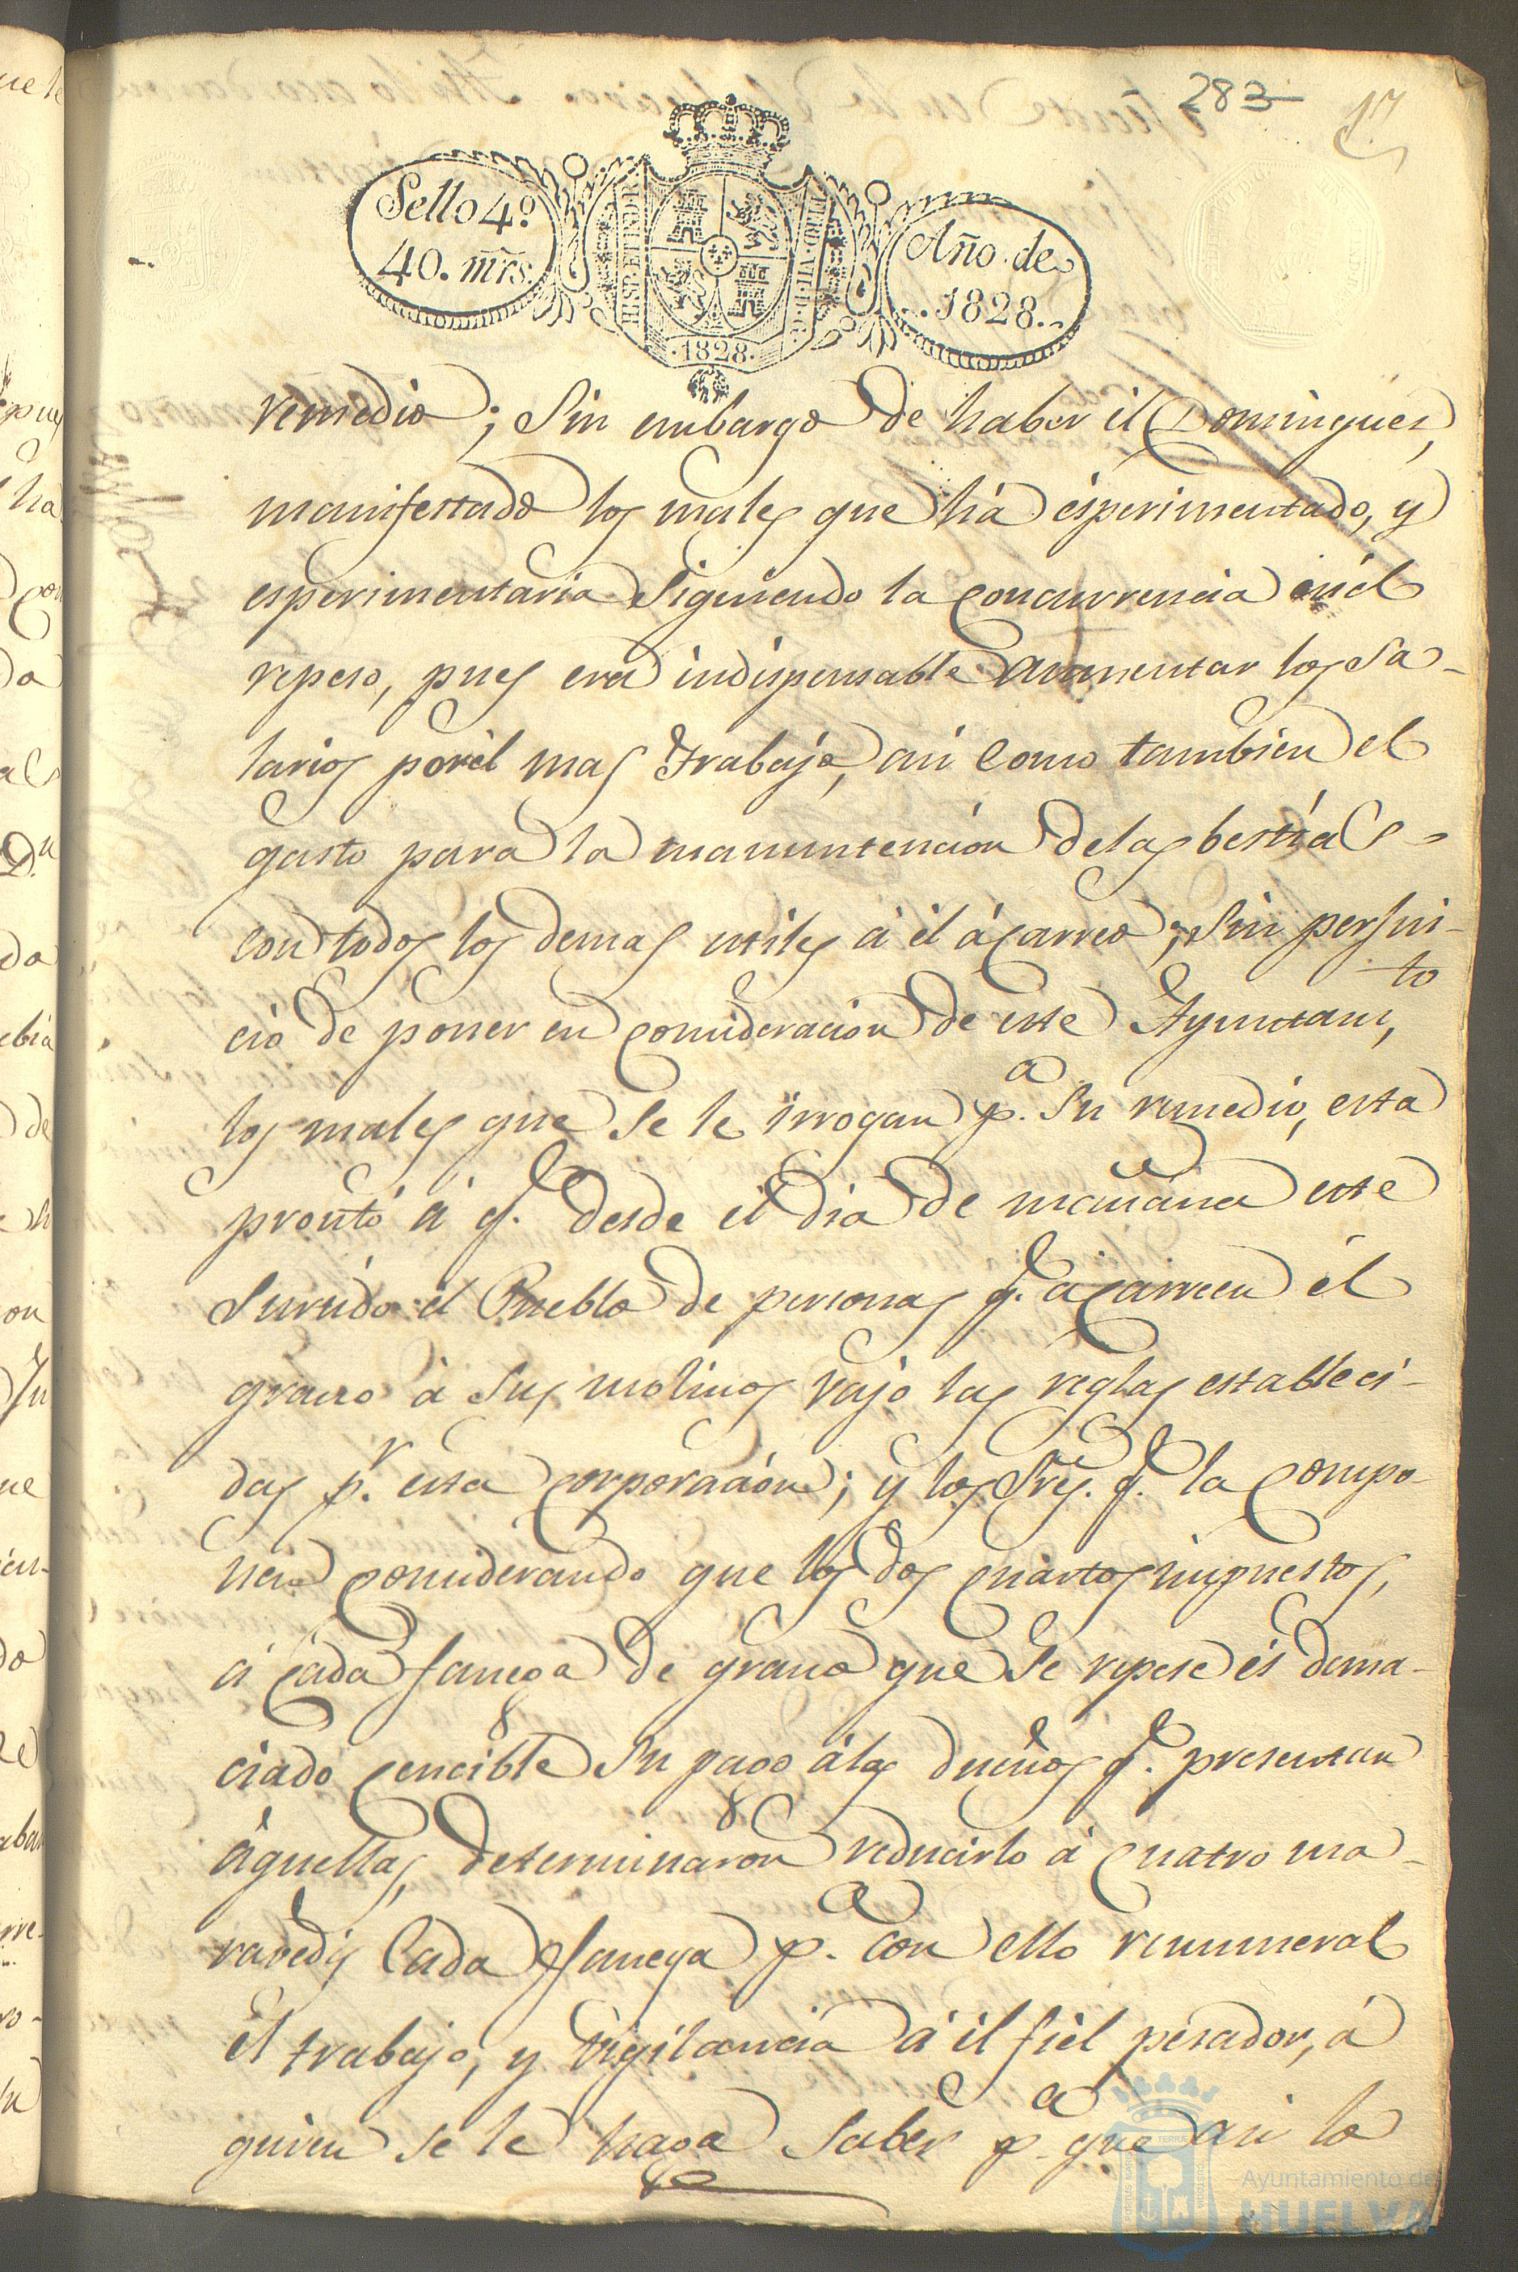 283
17
Sello 4º
40. mrs.
HISP. ET IND. R.
FERD. VII. D. G.
1828
Año de
1828
remedio; Sin embargo de haber él Domingues,
manifestado los males que há ésperimentado, y
esperimentaria Siguiendo la Concurrencia en él
repeso, pues era indispensable aumentar los Sa-
larios por él mas trabajo, asi Como tambien el
gasto para la manuntencion de las bestias
con todos los demas utiles á él ácarreo; Sin perjui-
cio de poner en Consideracion de este Ayuntamto,
los males que Se le irrogan pa. Su remedio, esta
pronto á q.e desde él dia de mañana este
Surtido él Pueblo de personas q.e acarreen él
grano á Sus molinos vajo las reglas estableci-
das p.r esta Corporacion; y los Sres. q.e la Compo-
nen Considerando que los dos Cuartos impuestos,
á Cada fanega de grano que Se repese és dema-
ciado Cencible Su pago á los dueños q.e presentan
áquellas, determinaron reducirlo á Cuatro ma-
ravedis Cada fanega p.a con ello remuneral
él trabajo, y vigilancia á él fiel pesador, á
quien se le haga Saber p.a que asi lo
Ayuntamiento de
HUELVA